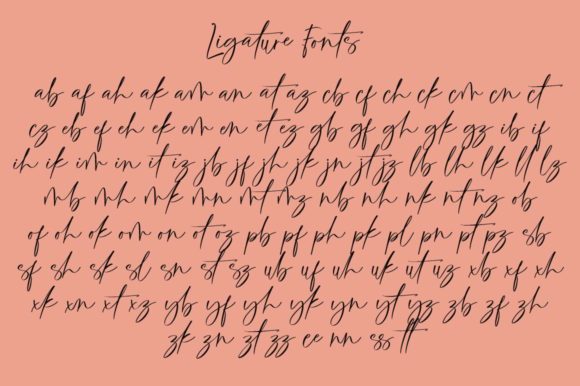 Ligature Fonts
ab af ah ak am an at az cb cf ch ck cm cn ct
cz eb ef eh ek em en et ez gb gf gh gk gz ib if
ih ik im in it iz jb jf jh jk jn jt jz lb lh lk ll lz
mb mh mk mn mt mz nb nh nk nt nz ob
of oh ok om on ot oz pb pf ph pk pl pn pt pz sb
sf sh sk sl sn st sz ub uf uh uk ut uz xb xf xh
xk xn xt xz yb yf yh yk yn yt yz zb zf zh
zk zn zt zz ee nn ss tt